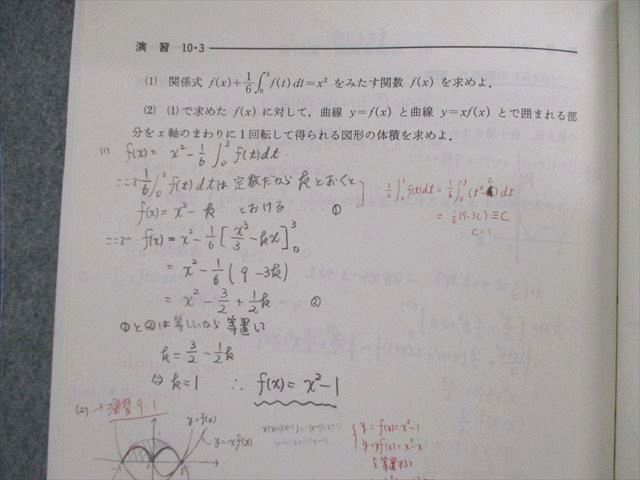 演習 10・3
(1) 関係式 f(x)+1/6∫₀³f(t)dt=x² をみたす関数 f(x) を求めよ.
(2) (1)で求めた f(x) に対して, 曲線 y=f(x) と曲線 y=xf(x) とで囲まれる部
分を x 軸のまわりに1回転して得られる図形の体積を求めよ.
(1) f(x) = x² - 1/6 ∫₀³ f(t)dt.
ここで 1/6∫₀³ f(t)dt は定数だから k とおくと
f(x) = x² - k とおける ①
1/6∫₀³ f(t)dt = 1/6∫₀³ (t²-c)dt
= 1/6(9-3C) ≡ C
C=1
ここで f(x) = x² - 1/6 [x³/3 - kx]₀³
= x² - 1/6 (9 - 3k)
= x² - 3/2 + 1/2 k ②
①と②は等しいから等置して
k = 3/2 - 1/2 k
⇔ k = 1 ∴ f(x) = x² - 1
(2) → 演習 9・1
y=f(x)
y=xf(x)
y = f(x) = x² - 1
y = xf(x) = x³ - x
を等置すると